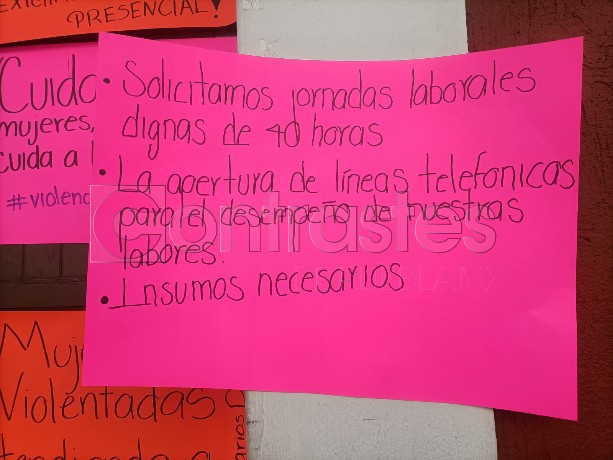 PRESENCIAL!
"Cuida
mujeres,
cuida a l
#violenc
• Solicitamos jornadas laborales
dignas de 40 horas
• La apertura de líneas telefonicas
para el desempeño de nuestras
labores.
• Insumos necesarios
Contrastes
Muj
Violentadas